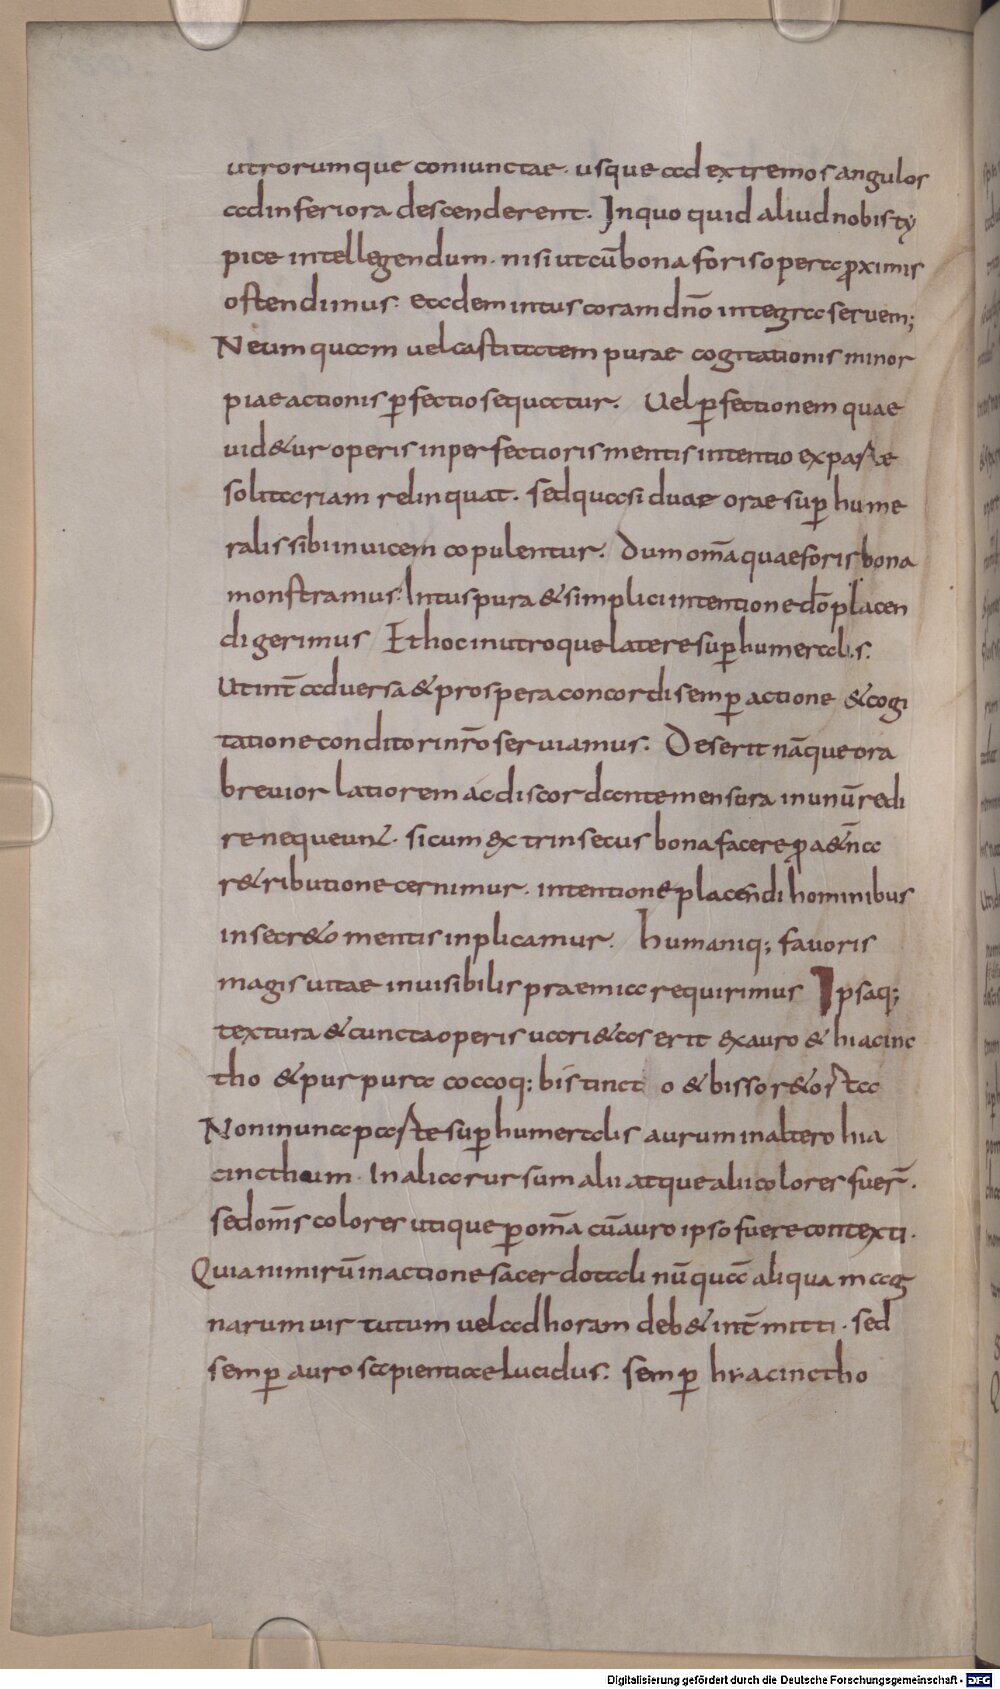 utrorumque coniunctae · usque ad extremos angulos
ad inferiora descenderent · In quo quid aliud nobis ty
pice intellegendum · nisi ut cū bona foris operta ꝓximis
ostendimus · eadem intus coram dn̄o integra seruem;
Ne umquam uel castitatem purae cogitationis minor
piae actionis ꝑfectio sequatur · Uel ꝑfectionem quae
uid&ur operis inperfectioris mentis intentio ex parte
solitariam relinquat · sed quasi duae orae suꝑ hume
ralis sibi inuicem copulentur · dum om̄a quae foris bona
monstramus · Intus pura & simplici intentione dō placen
di gerimus Et hoc in utroque latere suꝑhumeralis ·
Ut int̄ aduersa & prospera concordi semꝑ actione & cogi
tatione conditori nr̄o seruiamus · Deserit nāque ora
breuior latiorem ac discordante mensura in unū redi
re nequeunt · si cum extrinsecus bona facere ꝓ a&n̄a
r&ributione cernimur · intentione placendi hominibus
in secr&o mentis inplicamur · humaniq; fauoris
magis uitae inuisibilis praemia requirimus Ipsaq;
textura & cuncta operis uari&as erit ex auro & hiacinc
tho & purpura coccoq; bis tincto & bisso r&orta
Non in unca parte suꝑhumeralis aurum in altero hia
cincthum · In alia rursum alii atque alii colores fuer̄ ·
sed om̄s colores utique ꝑ om̄a cū auro ipso fuere contexti ·
Quia nimirū in actione sacerdotali nūquā aliqua mag
narum uirtutum uel ad horam deb& int̄mitti · sed
semꝑ auro sapientiae lucidus · semꝑ hiacinctho
Digitalisierung gefördert durch die Deutsche Forschungsgemeinschaft - DFG